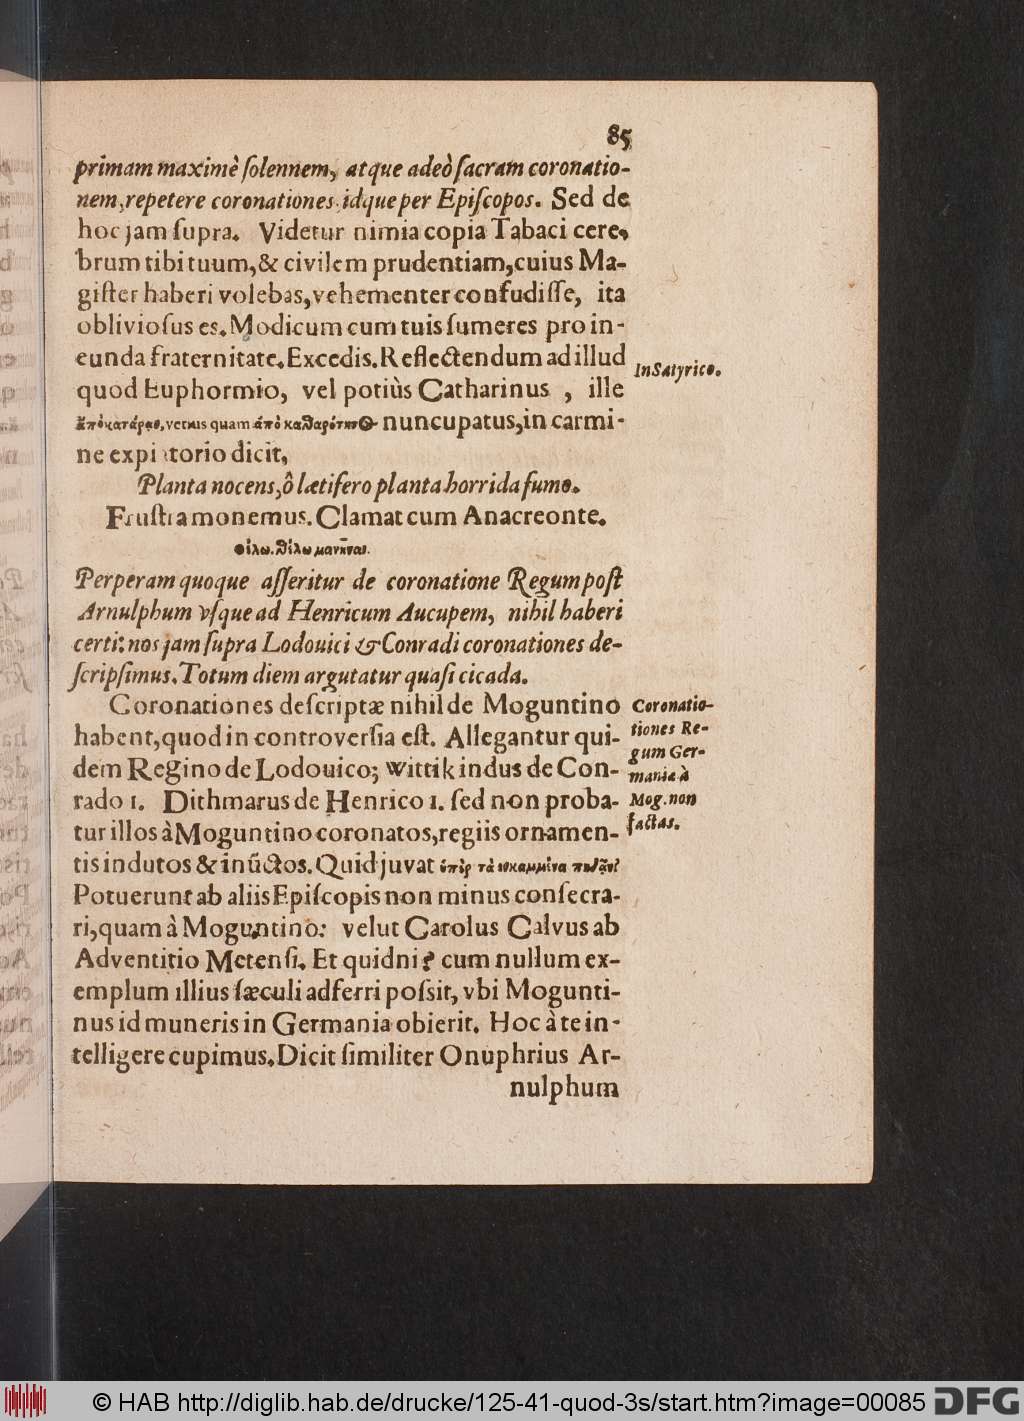 85
primam maximè ſolennem, atque adeò ſacram coronatio-
nem, repetere coronationes, idque per Epiſcopos. Sed de
hoc jam ſupra. Videtur nimia copia Tabaci cere-
brum tibi tuum, & civilem prudentiam, cuius Ma-
giſter haberi volebas, vehementer confudiſſe, ita
oblivioſus es. Modicum cum tuis ſumeres pro in-
eunda fraternitate. Excedis. Reflectendum ad illud
In Satyrico.
quod Euphormio, vel potiùs Catharinus , ille
verius quam nuncupatus, in carmi-
ne expiatorio dicit,
Planta nocens, ô lætifero planta horrida fumo.
Fruſtra monemus. Clamat cum Anacreonte.
Θέλω. θέλω μανῆναι.
Perperam quoque aſſeritur de coronatione Regum poſt
Arnulphum vſque ad Henricum Aucupem, nihil haberi
certi: nos jam ſupra Lodouici & Conradi coronationes de-
ſcripſimus. Totum diem argutatur quaſi cicada.
Coronationes deſcriptæ nihil de Moguntino
habent, quod in controverſia eſt. Allegantur qui-
dem Regino de Lodouico; Wittikindus de Con-
rado 1. Dithmarus de Henrico 1. ſed non proba-
tur illos à Moguntino coronatos, regiis ornamen-
tis indutos & inūctos. Quid juvat ὑπὲρ τὰ
Potuerunt ab aliis Epiſcopis non minus conſecra-
ri, quam à Moguntino: velut Carolus Calvus ab
Adventitio Metenſi. Et quidni? cum nullum ex-
emplum illius ſæculi adferri poſsit, vbi Mogunti-
nus id muneris in Germania obierit. Hoc à te in-
telligere cupimus. Dicit ſimiliter Onuphrius Ar-
nulphum
Coronatio-
tiones Re-
gum Ger-
maniæ à
Mog. non
factas.
© HAB http://diglib.hab.de/drucke/125-41-quod-3s/start.htm?image=00085
DFG